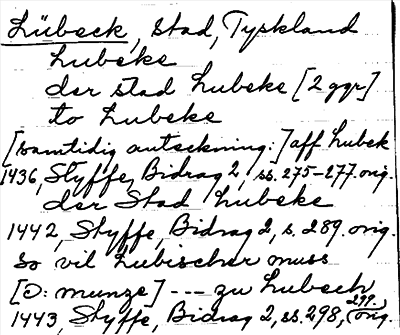 Lübeck, stad, Tyskland
Lubeke
der stad Lubeke [2 ggr]
to Lubeke
[samtidig anteckning:] aff Lubek
1436, Styffe, Bidrag 2, ss. 275-277. orig.
der Stad Lubeke
1442, Styffe, Bidrag 2, s. 289. orig.
So vil Lubischer muss
[Ɔ: munze] --- zu Lubech
1443, Styffe, Bidrag 2, ss. 298, 299. orig.